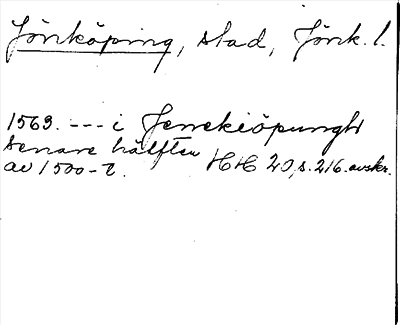 Jönköping, stad, Jönk. l.
1563. --- i Jenekiöpungh
senare hälften
av 1500-t. HH 20, s. 216. avskr.